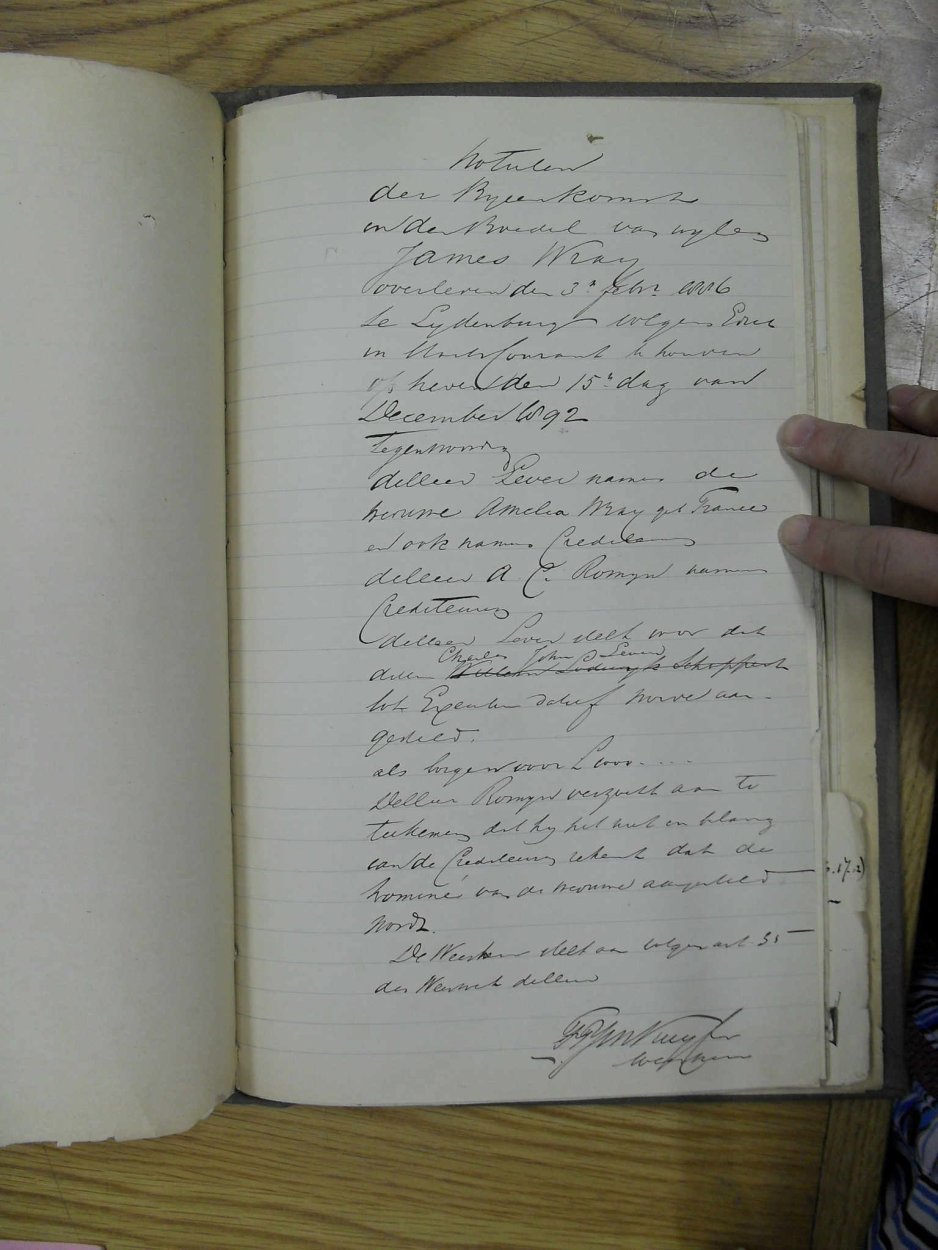 Notulen
der Byeenkomst
in den Boedel van wylen
James Wray
overleden den 3n Febr. 1886
te Lydenburg volgens Edict
in Staats Courant te houden
op heden den 15n dag van
December 1892
Tegenwoordig
de Heer Lever namens de
weduwe Amelia Wray geb France
en ook namens Crediteuren
de Heer A. C. Romyn namens
Crediteuren
de Heer Lever stelt voor dat
Charles John Lever
de Heer Willem Lodewyk Schappert
tot Executeur Datief worde aan-
gesteld.
als borgen voor £
De Heer Romyn verzoekt aan te
teekenen dat hy het niet in belang
van de Crediteuren rekent dat de
nominé van de weduwe aangesteld
wordt.
De Weesheer stelt aan volgens art 35
der Weeswet de Heer
Weesheer
17.2)